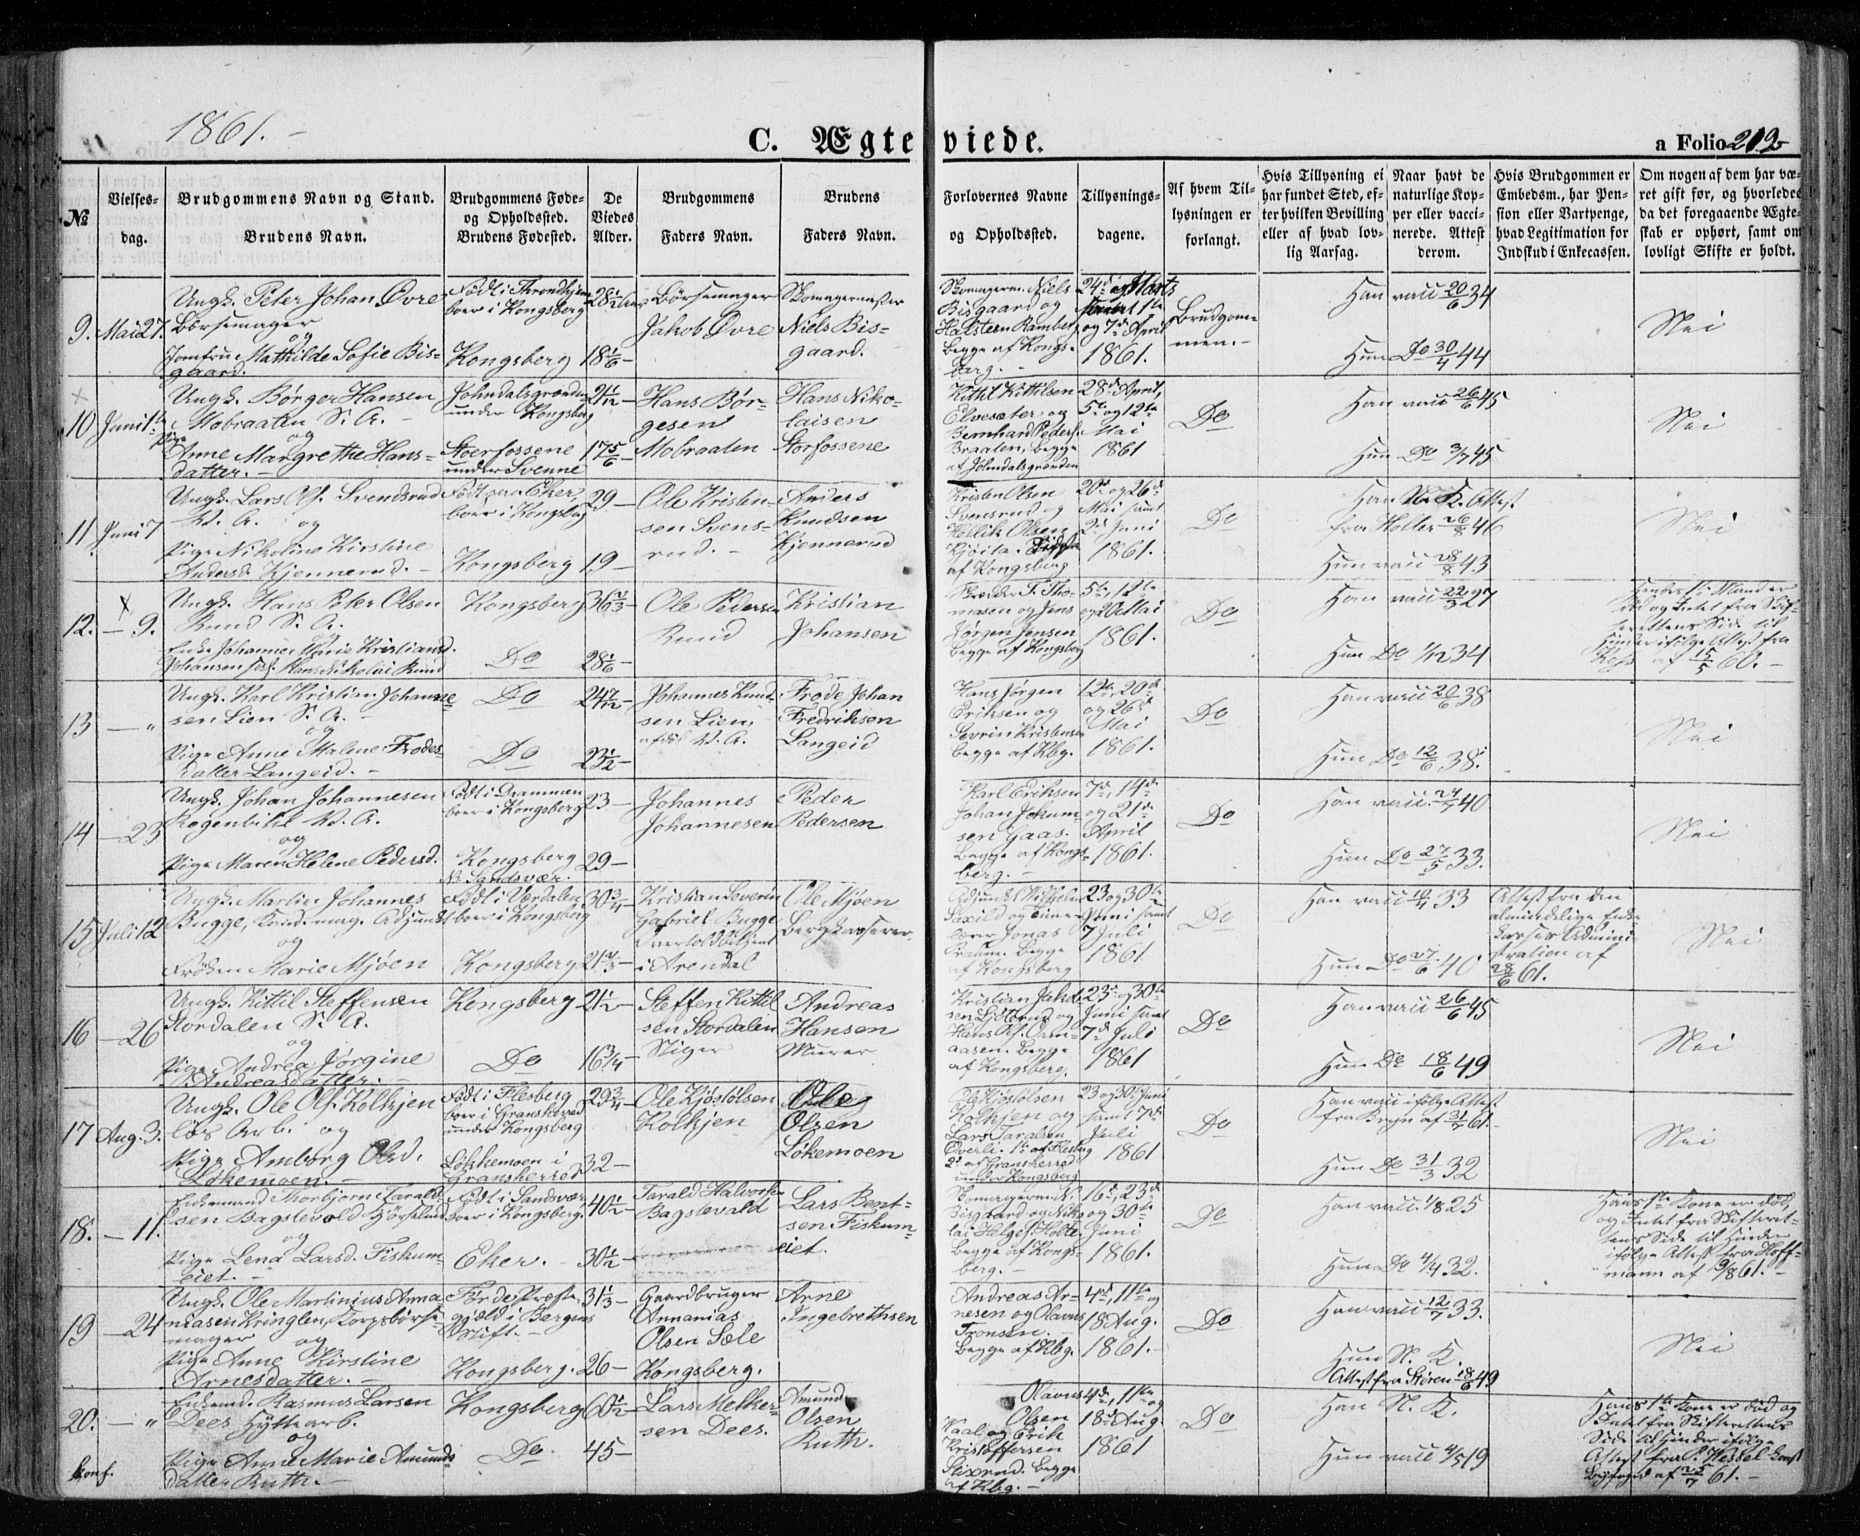 1861.
C. Ægteviede.
a Folio 212
№
Vielsesdag.
Brudgommens Navn og Stand.
Brudens Navn.
Brudgommens Føde- og Opholdssted.
Brudens Fødested.
De Viedes Alder.
Brudgommens Faders Navn.
Brudens Faders Navn.
Forlovernes Navne og Opholdssted.
Tillysningsdagene.
Af hvem Tillysningen er forlangt.
Hvis Tillysning ei har fundet Sted, efter hvilken Bevilling eller af hvad lovlig Aarsag.
Naar havt de naturlige Kopper eller vaccinerede. Attest derom.
Hvis Brudgommen er Embedsm., har Pension eller Vartpenge, hvad Legitimation for Indskud i Enkecassen.
Om nogen af dem har været gift før, og hvorledes da det foregaaende Ægteskab er ophørt, samt om lovligt Skifte er holdt.
9. Mai 27.
Ungk. Peter Johan Øvre
Børsemager
og
Jomfru Mathilde Sofie Bisgaard.
Født i Throndhjem
boer i Kongsberg
Kongsberg
28 1/2 Aar
18 1/6
Børsemager
Jakob Øvre
Skomagermester
Niels Bisgaard.
Skomagerm. Niels
Bisgaard og
Halsteen Ramberg
begge af Kongsberg.
24d Marts
1ste
og 7d April
1861.
Brudgommen.
Han vacc 20/6 34
Hun Do 30/4 44
Nei
10 Juni 1ste
Ungk. Børger Hansen
Mobraaten S. A.
og
Pige Anne Margrethe Hansdatter.
Johndalsgrænden
under Kongsberg
Stoerfossene
under Svenne
21 1/12
17 5/6
Hans Børgesen
Mobraaten
Hans Nikolaisen
Storfossene
Kittil Kittilsen
Elvesæter og
Bernhard Peders.
Braaten, begge
af Johndalsgrænden
28d April,
5te og 12te
Mai
1861
Do
Han vacc 26/6 45
Hun Do 3/7 45
Nei
11 Juni 7
Ungk. Lars Ols. Svendsrud
K. A. og
Pige Nikoline Kirstine
Andersd. Kjennerud.
Født paa Eker,
boer i Kongsbg
Kongsberg
29
19
Ole Kristensen Svensrud.
Anders
Knudsen
Kjennerud
Kristen Olsen
Svensrud og
Hellik Olsen
af Kongsberg
20d og 26d
Mai samt
2d Juni
1861.
Do
Han N. K. Attest
fra Holter 26/8 46
Hun vacc 28/8 43
Nei
12. 9.
Ungk. Hans Peter Olsen
Ruud S. A.
Enke Johanne Marie Kristiansd.
Johansen
Hans Nikolai Ruud
Kongsberg
Do
36 2/3
28 1/6
Ole Pedersen
Ruud
Kristian
Johansen
F. Thomasen og Jens
Jørgen Jensen
begge af Kongsberg
5te, 12te
og 20 Mai
1861.
Do
Han vacc 22/3 27
Hun Do 1/12 34
Hendes 1ste Mand er
død og Intet fra Skifterettens Side til
Hinder ifølge Attest fra
af 15/5 60.
13 "
Ungk. Karl Kristian Johannesen Lien S. A.
og
Pige Anne Malene Frodesdatter Langeid.
Do
Do
24 7/12
23 1/2
Johannes Knudsen Lien,
Frode Johan
Fredriksen
Langeid
Hans Jørgen
Eriksen og
Sevrin Kristensen
begge af Kbg.
12te, 20d
og 26d
Mai
1861.
Do
Han vacc 20/6 38
Hun Do 12/6 38.
Nei
14 23
Ungk. Johan Johannesen
og
Pige Maren Helene Pedersd.
Født i Drammen
boer i Kongsberg
Kongsberg
No Sandsvær.
23
29
Johannes
Johannesen
Peder
Pedersen
Karl Eriksen
Johan Johannsen Gaas.
begge af Kongsberg.
7d, 14d
og 21d
April
1861.
Do
Han vacc. 40
Hun Do 27/5 33.
Nei
15 Juli 12
Ungk. Martin Johannes
Bugge, Kand. mag. Adjunkt
og
Frøken Marie Mjøen
Født i Værdalen,
boer i Kongsberg
Kongsberg
30 3/4
21 2/3
Kristian Severin
Gabriel Bugge
Overtoldbetjent
i Arendal
Ole Mjøen
Bergkasserer.
Adjunkt Wilhelm
Jonas
begge
af Kongsberg
23 og 30te
Juni samt
7 Juli
1861
Do
Han vacc 10/4 33
Hun Do 27/6 40
Attest fra den
almindelige Enkekasses Administration af
28/6 61.
Nei
16 26
Ungk. Kittil Steffensen
Stordalen S. A.
og
Pige Andrea Jørgine
Andreasdatter.
Kongsberg
Do
21 1/2
16 3/4
Steffen Kittilsen Stordalen
Stiger
Andreas
Hansen
Murer
Kristian
og
Hans Ols.
begge
af Kongsberg.
23d og 30te
Juni samt
7d Juli
1861
Do
Han vacc 26/6 45
Hun Do 18/6 49
Nei
17 Aug. 3.
Ungk. Ole Ols. Kolkjen
løs Arb. og
Pige Amborg Olsd.
Løkemoen.
Født i Flesberg
boer i Gransherred
under Kongsberg
Løkkemoen i
Gransherred
29 3/4
32
Ole Kjøstolsen
Kolkjen
Ole
Olsen
Løkemoen
Ole Kjøstolsen
Kolkjen og
Lars Taralsen
Overli. 1ste af Flesberg
2d af Gransherred
under Kongsberg
23 og 30te Juni
samt 7d
Juli
1861
Do
Han vacc ifølge Attest
fra 31/5 61.
Hun Do 31/3 32
Nei
18. 11.
Enkemand Thorbjørn Taraldsen Bagslevold
og
Pige Lena Larsd. Fiskumeiet.
Født i Sandsvær
boer i Kongsberg.
Eker.
40 1/2
30 1/2
Tarald Halvorsen
Bagslevold
Lars Bentsen Fiskumeiet.
Skomagerm. N.
Bisgaard og Nikolai Helges. Holte
begge af Kongsberg.
16d, 23d
og 30te
Juni
1861.
Do
Han vacc. 1/8 25
Hun Do 4/4 32.
Hans 1ste Kone er død,
og Intet fra Skifterettens Side til Hinder
ifølge Attest fra Hoffmann af 9/8 61.
19 24
Ungk. Ole Martinius Annaniasen Kringlen, Korpsbørsemager og
Pige Anne Kirstine
Arnesdatter.
Førde Præstegjæld i Bergens
Stift.
Kongsberg.
31 1/3
26
Gaardbruger
Annanias
Olsen Sæle
Kongsberg.
Arne
Ingebrethsen
Andreas Arnesen og Olavus
Tronsen.
Begge af Kbg.
4d, 11te og
18 Aug.
1861.
Do
Han vacc 12/7 33.
Hun N. K.
Attest fra Støren 18/6 49
Nei
20. "
Enkemd. Rasmus Larsen
Dees, Hyttearb.
og
Pige Anne Marie Amundsdatter Ruth.
Kongsberg
Do.
60 1/2
45
Lars Melkersen Dees.
Amund
Olsen
Ruth.
Olavus
Olsen
Waal og Erik
Kristoffersen
begge
af Kbg.
4d, 11te og
18d Aug.
1861
Do
Han N. K.
Hun vacc 4/5 19
Hans 1ste Kone er død og
Intet fra Skifterettens
Side til Hinder ifølge
Attest fra P. Hessel konst
Byfoged af 25/7 61.
konf.